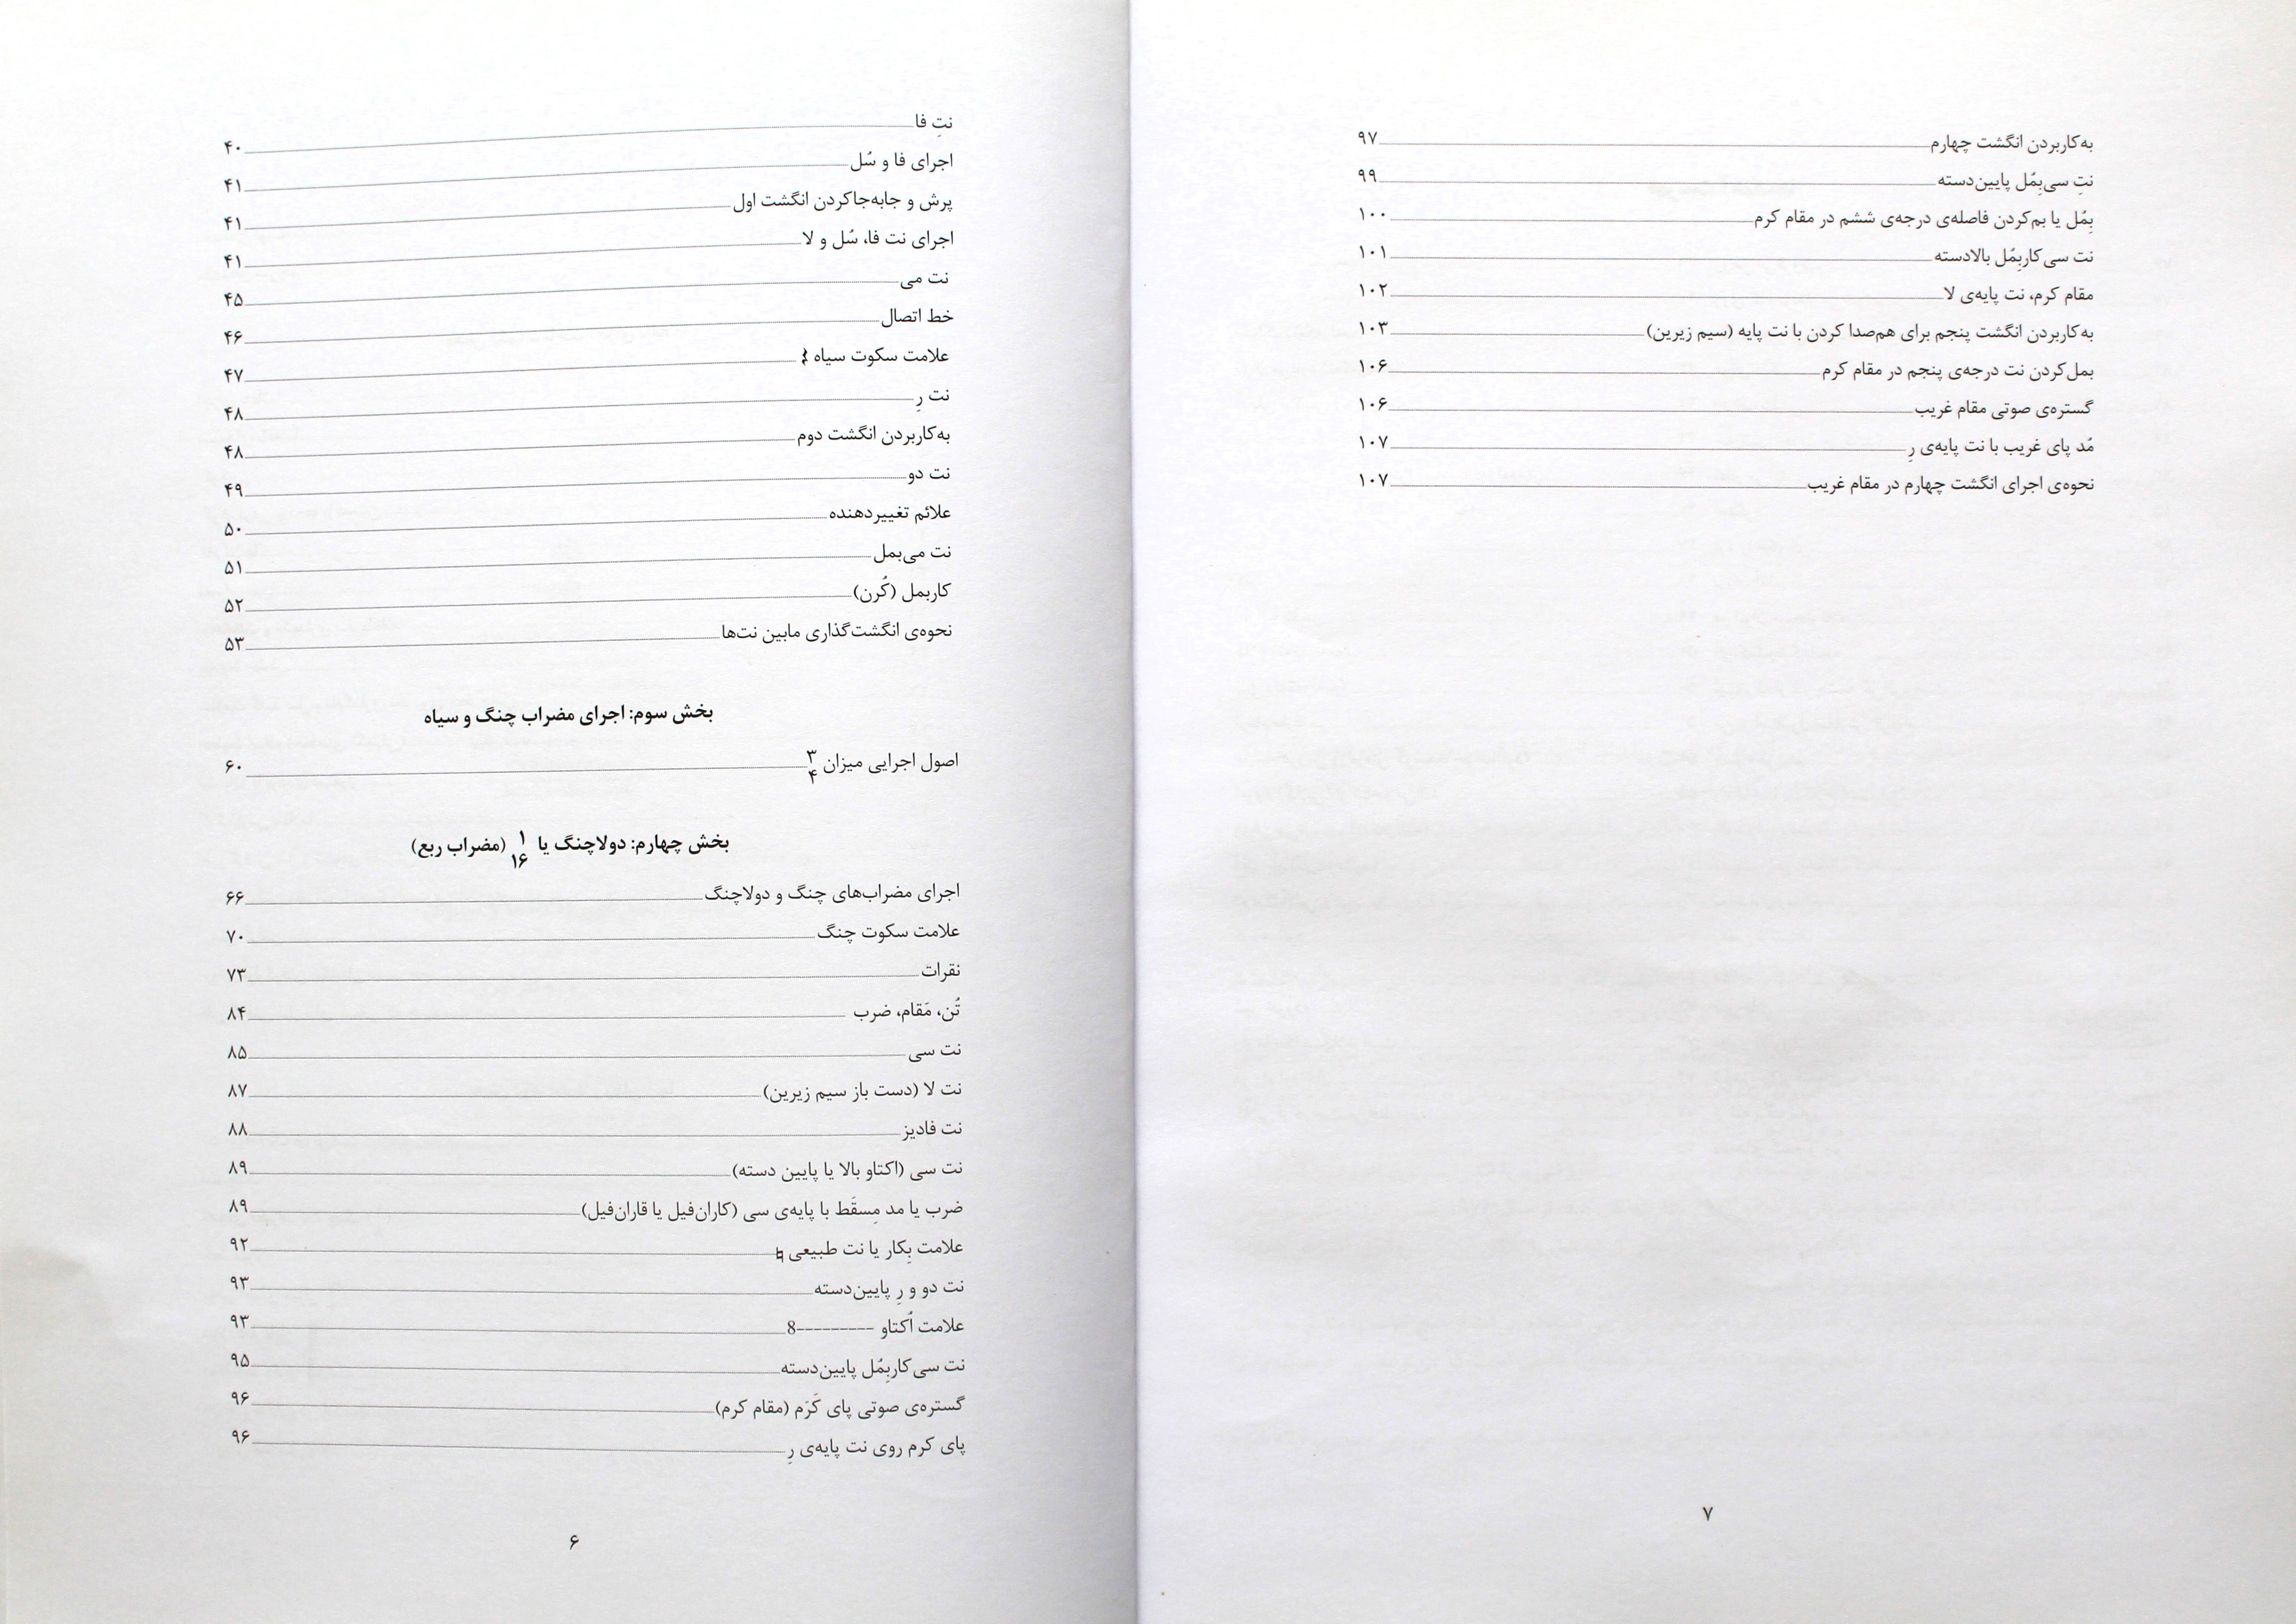 نتِ فا ۴۰
اجرای فا و سُل ۴۱
پرش و جابه‌جاکردن انگشت اول ۴۱
اجرای نت فا، سُل و لا ۴۱
نت می ۴۵
خط اتصال ۴۶
علامت سکوت سیاه 𝄽 ۴۷
نت رِ ۴۸
به‌کاربردن انگشت دوم ۴۸
نت دو ۴۹
علائم تغییردهنده ۵۰
نت می‌بمل ۵۱
کاربمل (کُرن) ۵۲
نحوه‌ی انگشت‌گذاری مابین نت‌ها ۵۳
بخش سوم: اجرای مضراب چنگ و سیاه
اصول اجرایی میزان ۳/۴ ۶۰
بخش چهارم: دولاچنگ یا ۱/۱۶ (مضراب ربع)
اجرای مضراب‌های چنگ و دولاچنگ ۶۶
علامت سکوت چنگ ۷۰
نقرات ۷۳
تُن، مَقام، ضرب ۸۴
نت سی ۸۵
نت لا (دست باز سیم زیرین) ۸۷
نت فادیز ۸۸
نت سی (اکتاو بالا یا پایین دسته) ۸۹
ضرب یا مد مِسقَط با پایه‌ی سی (کاران‌فیل یا قاران‌فیل) ۸۹
علامت بِکار یا نت طبیعی ♮ ۹۲
نت دو و رِ پایین‌دسته ۹۳
علامت اُکتاو ---------8 ۹۳
نت سی‌کاربِمُل پایین‌دسته ۹۵
گستره‌ی صوتی پای کَرَم (مقام کرم) ۹۶
پای کرم روی نت پایه‌ی رِ ۹۶
۶
به‌کاربردن انگشت چهارم ۹۷
نتِ سی‌بِمُل پایین‌دسته ۹۹
بِمُل یا بم‌کردن فاصله‌ی درجه‌ی ششم در مقام کرم ۱۰۰
نت سی‌کاربِمُل بالادسته ۱۰۱
مقام کرم، نت پایه‌ی لا ۱۰۲
به‌کاربردن انگشت پنجم برای هم‌صدا کردن با نت پایه (سیم زیرین) ۱۰۳
بمل‌کردن نت درجه‌ی پنجم در مقام کرم ۱۰۶
گستره‌ی صوتی مقام غریب ۱۰۶
مُد پای غریب با نت پایه‌ی رِ ۱۰۷
نحوه‌ی اجرای انگشت چهارم در مقام غریب ۱۰۷
۷